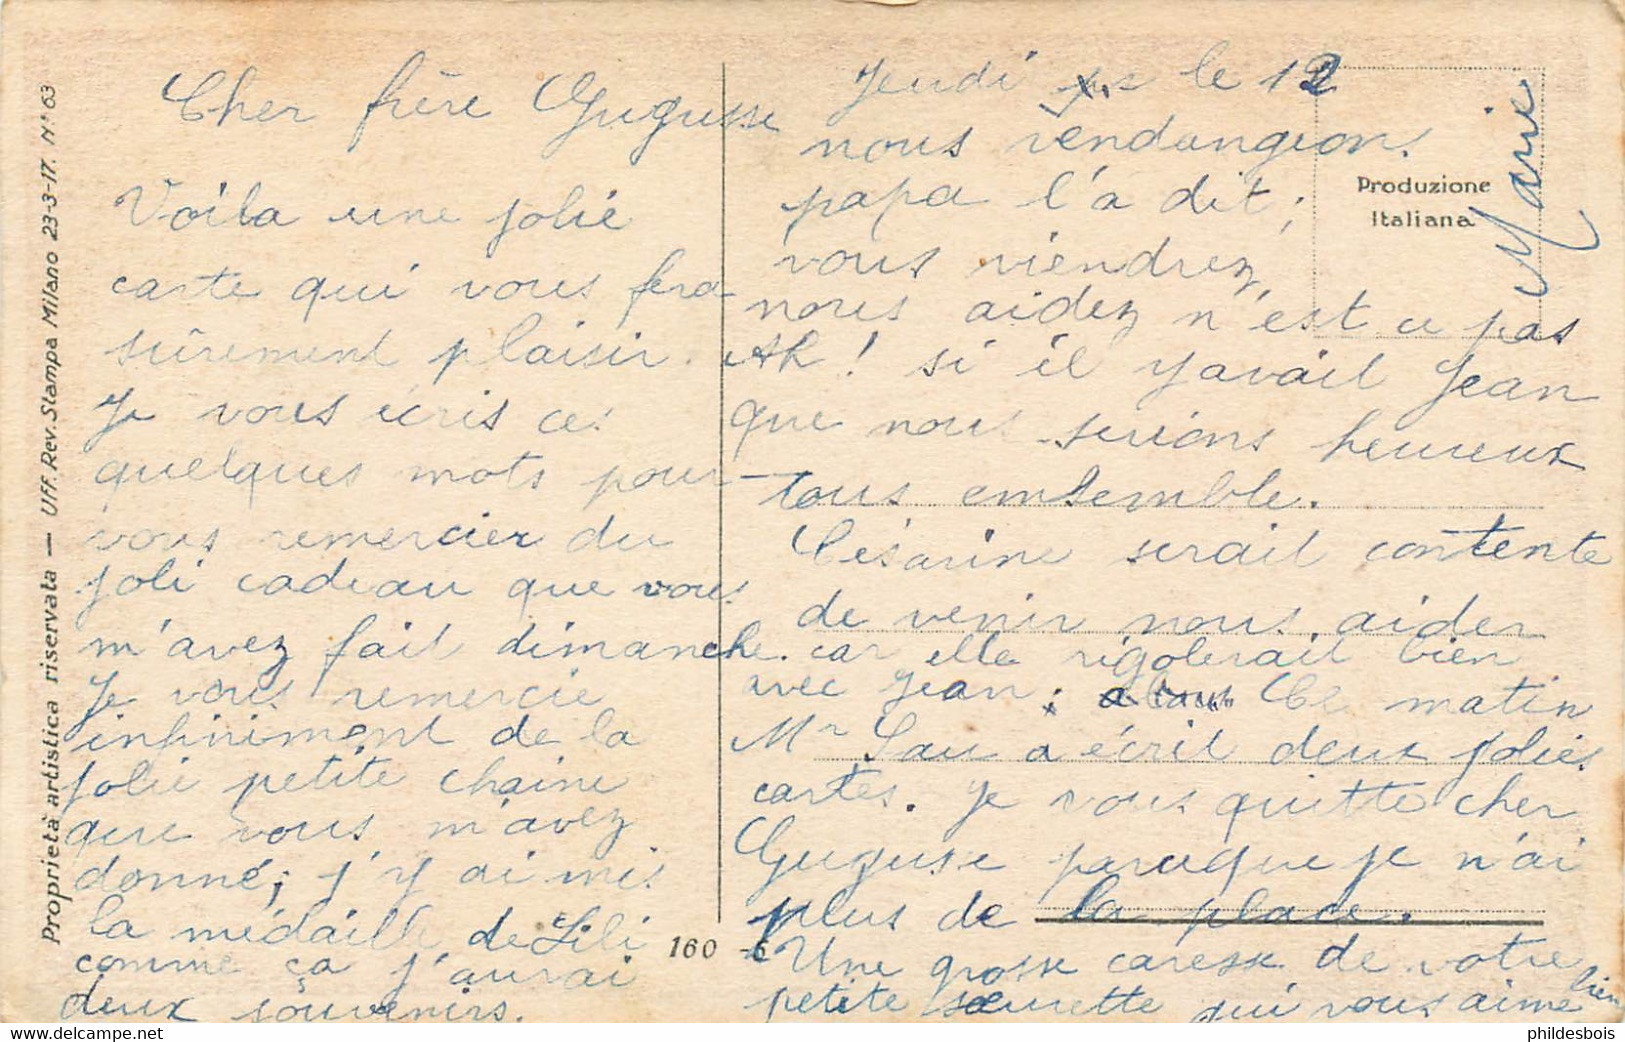 Cher frère Gugusse
Voila une jolie
carte qui vous fera
sûrement plaisir.
Je vous écris ces
quelques mots pour
vous remercier du
joli cadeau que vous
m'avez fait dimanche.
Je vous remercie
infiniment de la
jolie petite chaine
que vous m'avez
donné; j'y ai mis
la médaille de Lili
comme ça j'aurai
deux souvenirs.
Jeudi le 12
nous vendangeons.
papa l'a dit;
vous viendrez
nous aidez n'est ce pas
Ah! si il y avait Jean
que nous serions heureux
tous emsemble.
Césarine serait contente
de venir nous aider
car elle rigolerait bien
avec Jean; Ce matin
Mr Lau a écrit deux jolies
cartes. Je vous quitte cher
Gugusse parceque je n'ai
plus de la place.
Une grosse caresse de votre
petite sœurette qui vous aime bien
Marie
Produzione
Italiana
160 -6
Proprietà artistica riservata — Uff. Rev. Stampa Milano 23-3-17. N° 63
phildesbois